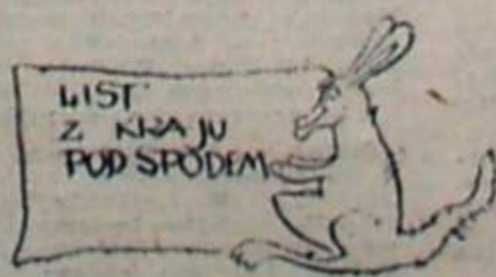 LIST
Z KRAJU
POD SPODEM